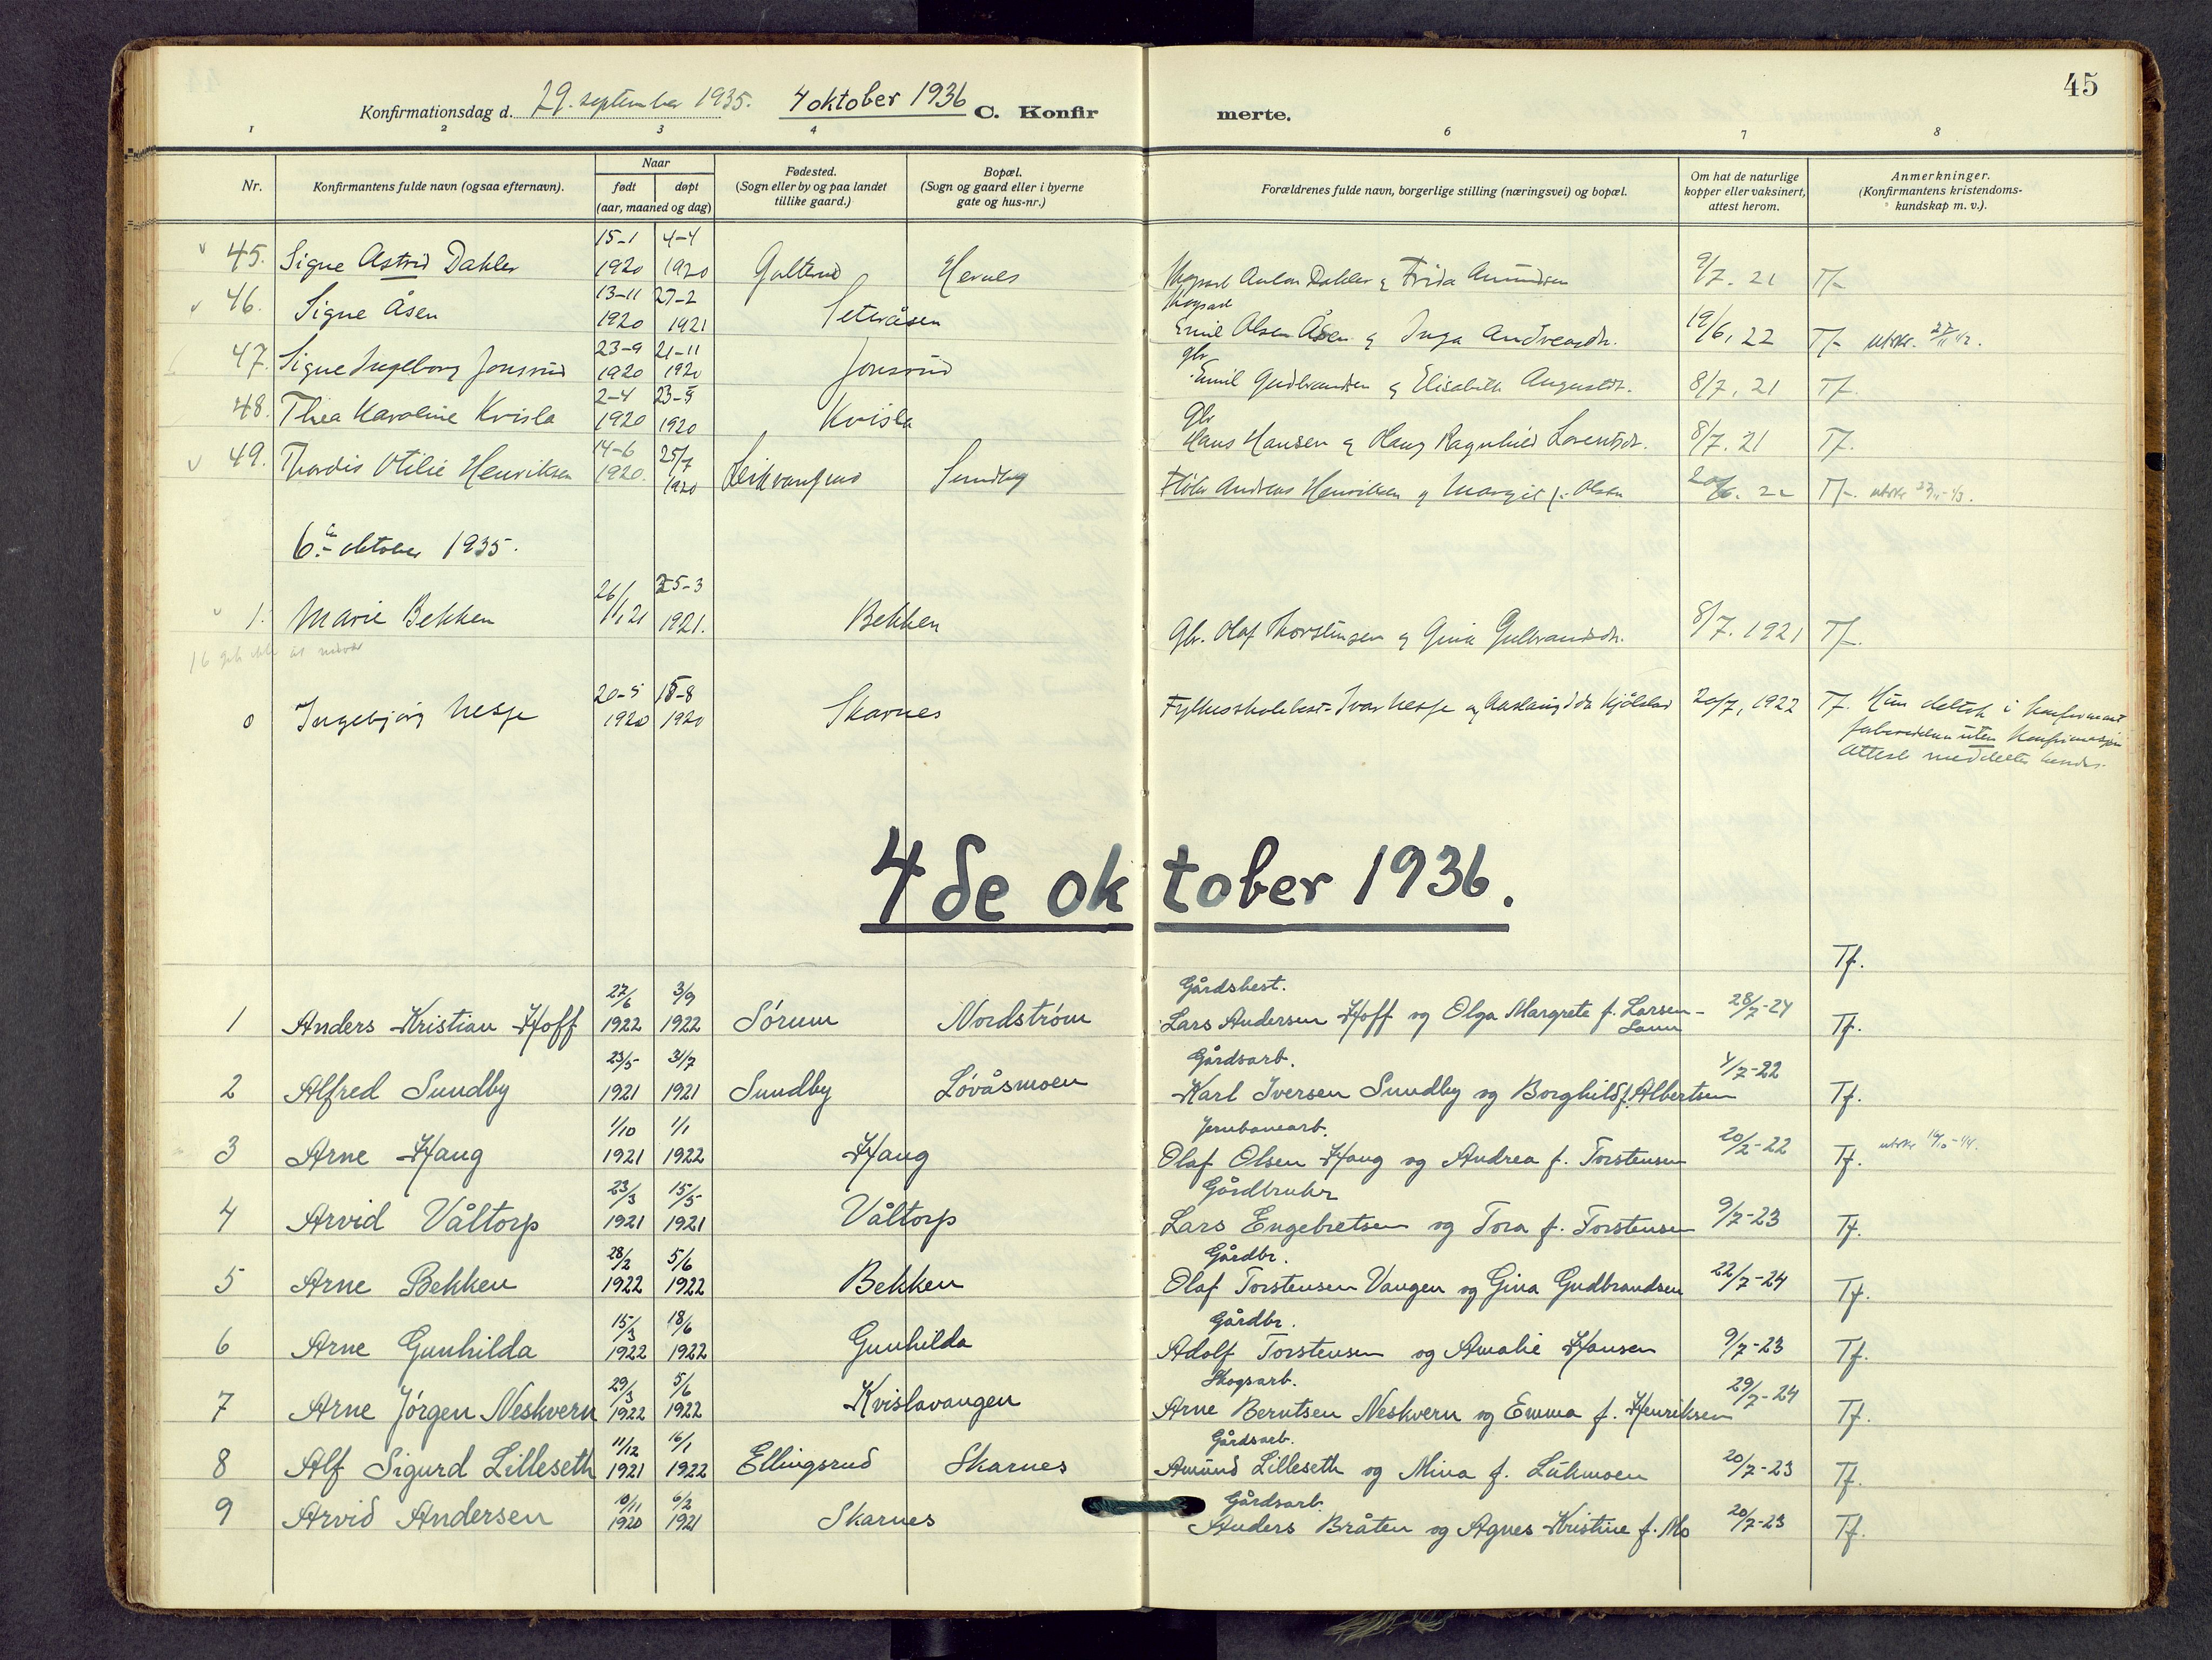 45
Konfirmationsdag d. 29. september 1935. 4 oktober 1936 C. Konfirmerte.
1 2 3 4 6 7 8
Nr.
Konfirmantens fulde navn (ogsaa efternavn).
Naar
født døpt
(aar, maaned og dag)
Fødested.
(Sogn eller by og paa landet
tillike gaard.)
Bopæl.
(Sogn og gaard eller i byerne
gate og hus-nr.)
Forældrenes fulde navn, borgerlige stilling (næringsvei) og bopæl.
Om hat de naturlige
kopper eller vaksinert,
attest herom.
Anmerkninger.
(Konfirmantens kristendoms-
kundskap m. v.).
15-1 4-4
45. Signe Astrid Dahler 1920 1920 Galterud Hernes Anton Dahler og Frida Amundsen 9/7. 21 Tf.
13-11 27-2
46. Signe Åsen 1920 1921 Seteråsen Emil Olsen Åsen og Inga Andreasdr. 19/6, 22 Tf.
23-9 21-11 gbr
47. Signe Ingeborg Jonsrud 1920 1920 Jonsrud Emil Gudbrandsen og Elisabeth Augustdr. 8/7, 21 Tf.
2-4 23-5 Gbr
48. Thea Karoline Kvisla 1920 1920 Kvisla Hans Hansen og Ragnhild Lorentsdr. 8/7. 21 Tf.
14-6 25/7
49. Thordis Otilie Henriksen 1920. 1920 Sundby Andreas Henriksen og Margit f. Olsen Tf.
6. oktober 1935.
26/ 25-3
1. Marie Bekken 11,21 1921. Bekken Gbr. Olaf Thorstensen og Gina Gulbrandsdr. 8/7. 1921 Tf.
20-5 15-8
0 Ingebjørg Nesje 1920 1920 Skarnes Ivar Nesje og 20/7, 1922 Tf. Hun deltok i konfirmant
forberedelsen uten konfirmasjon
Attest meddelt hende.
4de oktober 1936.
Tf.
27/6 3/9 Gårdsbest.
1 Anders Kristian Hoff 1922 1922 Sørum Nordstrøm Lars Andersen Hoff og Olga Margrete f. Larsen- 28/7-24 Tf.
23/5 31/7 Gårdsarb.
2 Alfred Sundby 1921 1921 Sundby Løvåsmoen Karl Iversen Sundby og Borghild f. Albertsen 4/7-22 Tf.
1/10 1/1 Jernbanearb.
3 Arne Haug 1921 1922 Haug Olaf Olsen Haug og Andrea f. Torstensen 20/2-22 Tf.
23/3 15/5 Gårdbruker
4 Arvid Våltorp 1921 1921 Våltorp Lars Engebretsen og Tora f. Torstensen 9/7-23 Tf.
28/2 5/6 Gårdbr.
5 Arne Bekken 1922 1922 Bekken Olaf Torstensen Vangen og Gina Gudbrandsen 22/7-24 Tf.
15/3 18/6 Gårdbr.
6 Arne Gunhilda 1922 1922 Gunhilda Adolf Torstensen og Amalie Hansen 9/7-23 Tf.
29/3 5/6 Skogsarb.
7 Arne Jørgen Neskvern 1922 1922 Kvislavangen Arne Berntsen Neskvern og Emma f. Henriksen 29/7-24 Tf.
11/12 16/1 Gårdsarb.
8 Alf Sigurd Lilleseth 1921 1922 Ellingsrud Skarnes Amund Lilleseth og Mina f. Lukmoen 20/7-23 Tf.
10/11 6/2 Gårdsarb.
9 Arvid Andersen 1920 1921 Skarnes Anders Bråten og Agnes Kristine f. Mo 20/7-23 Tf.